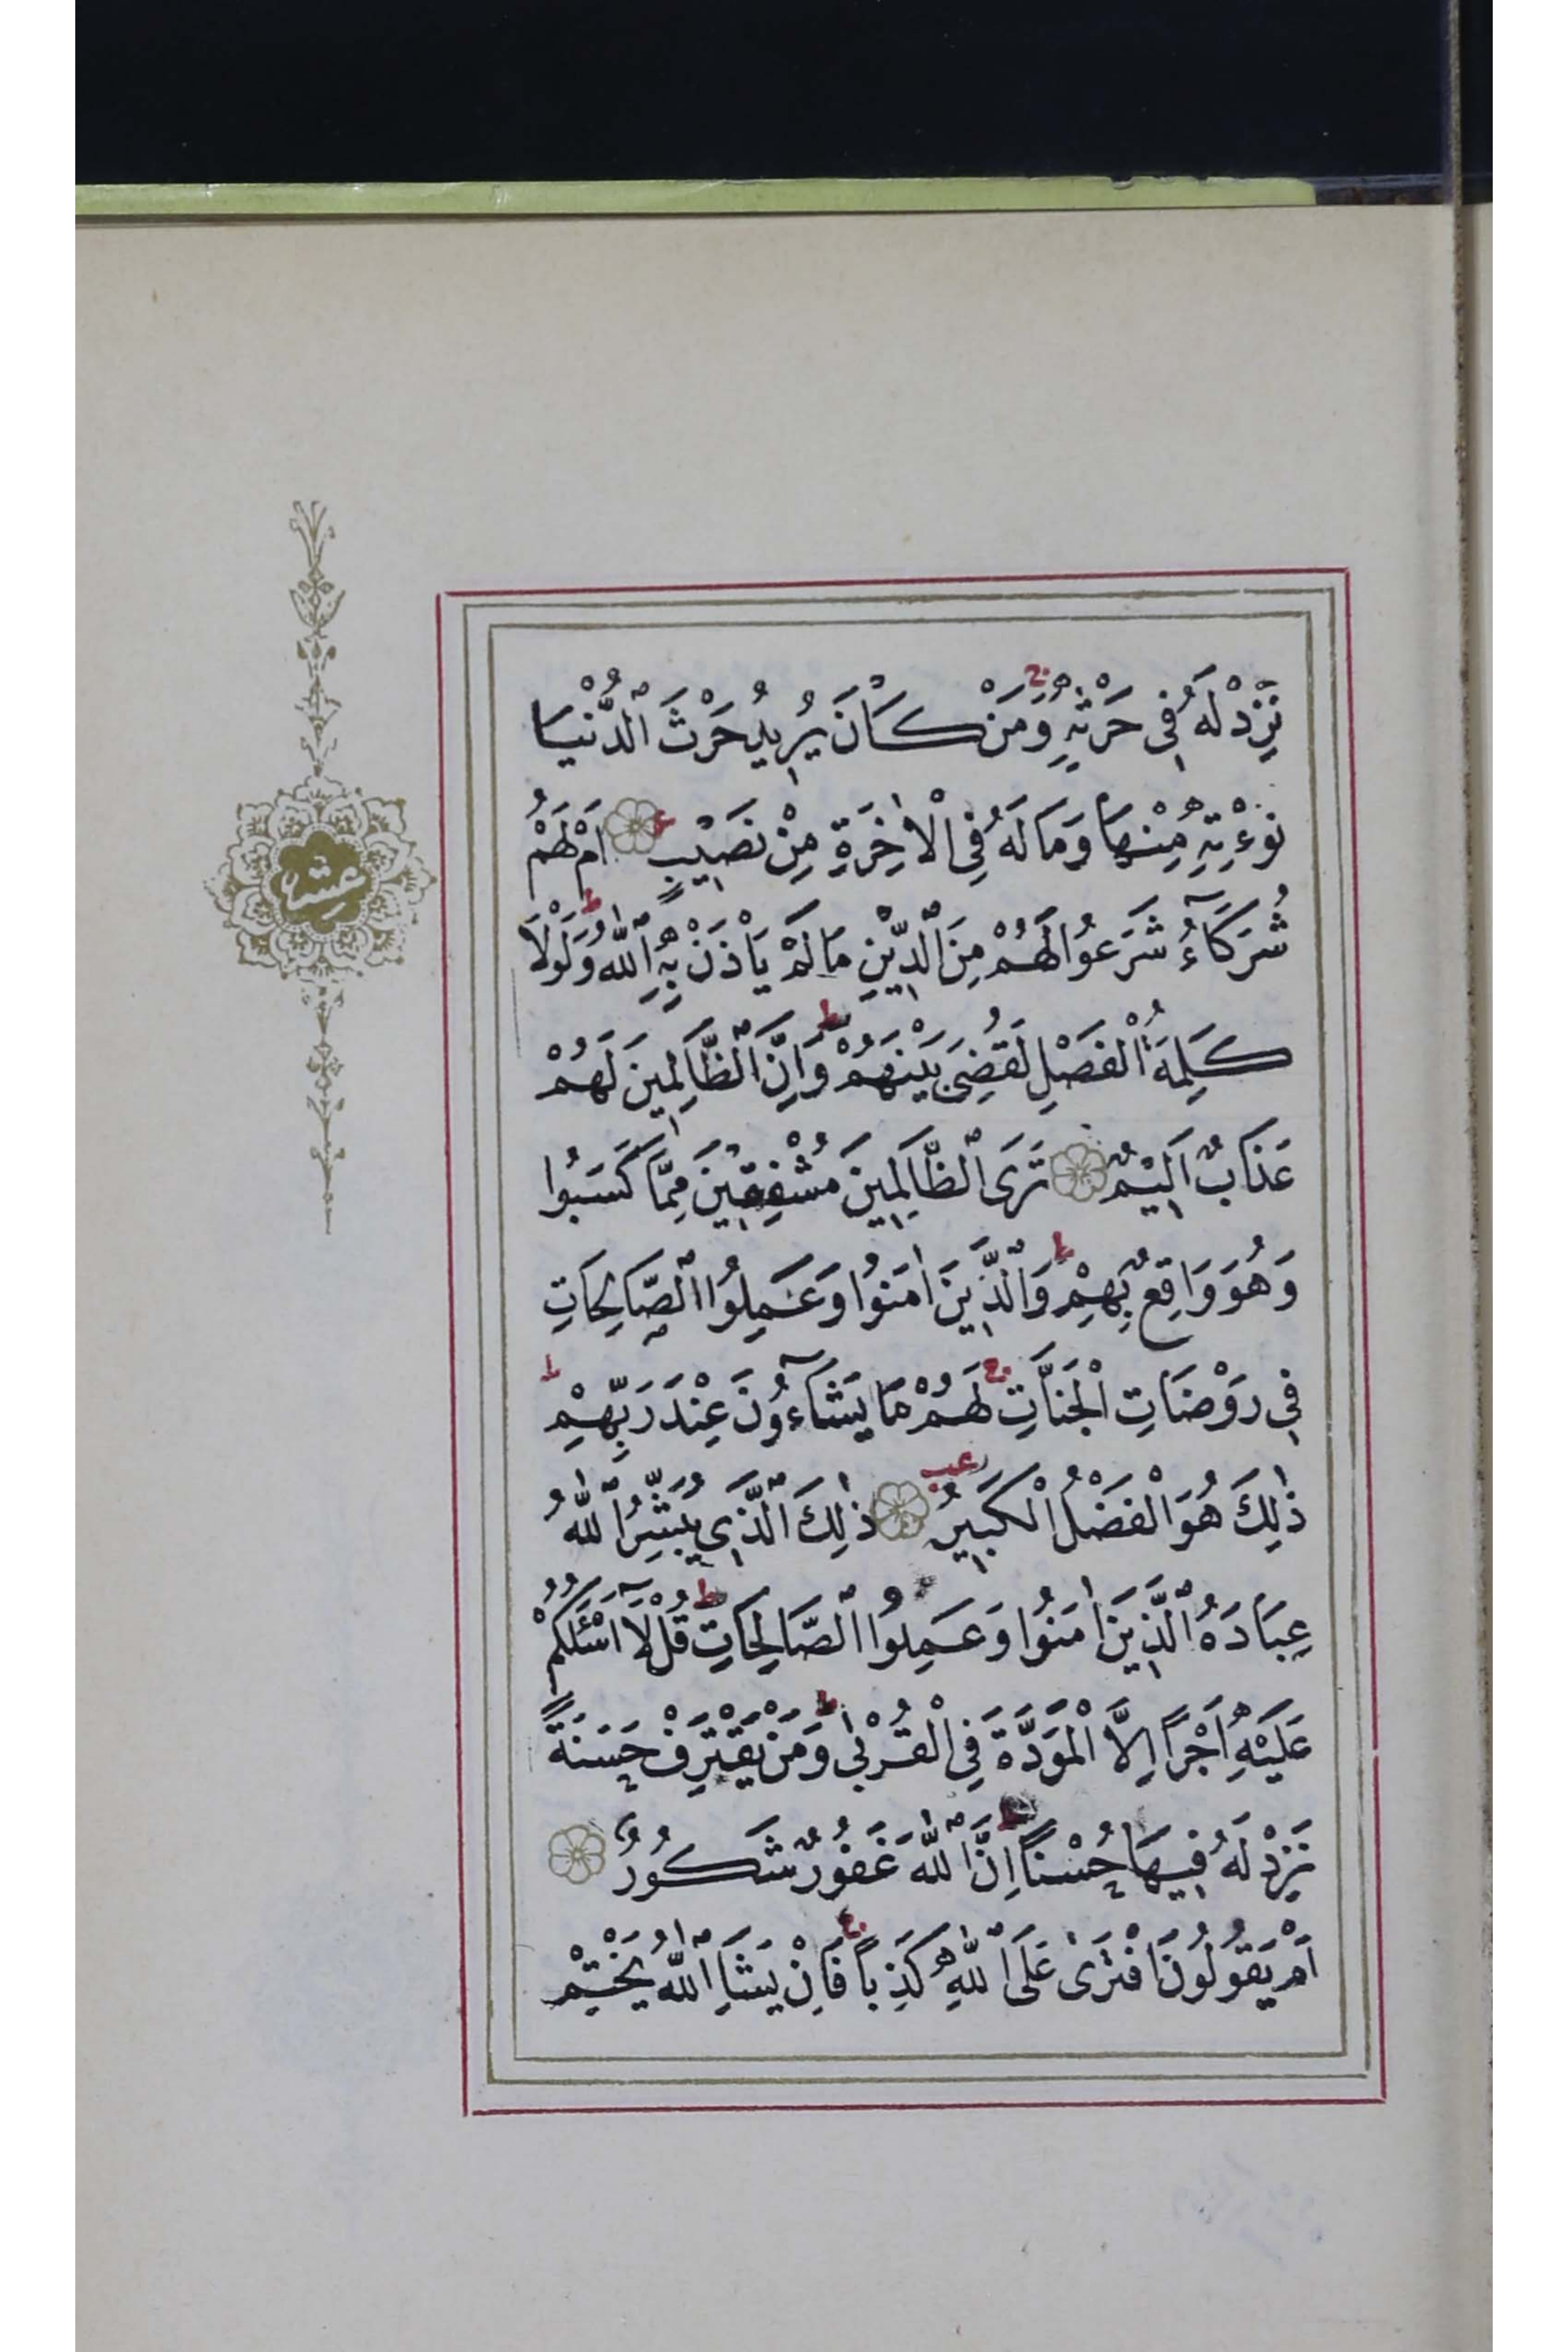 نَزِدْ لَهُ فِي حَرْثِهِ ۚ وَمَنْ كَانَ يُرِيدُ حَرْثَ الدُّنْيَا
نُؤْتِهِ مِنْهَا وَمَا لَهُ فِي الْاٰخِرَةِ مِنْ نَصِيبٍ اَمْ لَهُمْ
عشر
شُرَكَآءُ شَرَعُوا لَهُمْ مِنَ الدِّينِ مَا لَمْ يَأْذَنْ بِهِ اللّٰهُ ط وَلَوْلَا
كَلِمَةُ الْفَصْلِ لَقُضِيَ بَيْنَهُمْ ط وَاِنَّ الظَّالِمِينَ لَهُمْ
عَذَابٌ اَلِيمٌ تَرَى الظَّالِمِينَ مُشْفِقِينَ مِمَّا كَسَبُوا
وَهُوَ وَاقِعٌ بِهِمْ ط وَالَّذِينَ اٰمَنُوا وَعَمِلُوا الصَّالِحَاتِ
فِي رَوْضَاتِ الْجَنَّاتِ ج لَهُمْ مَا يَشَآءُونَ عِنْدَ رَبِّهِمْ ط
ذٰلِكَ هُوَ الْفَضْلُ الْكَبِيرُ ذٰلِكَ الَّذِي يُبَشِّرُ اللّٰهُ
عِبَادَهُ الَّذِينَ اٰمَنُوا وَعَمِلُوا الصَّالِحَاتِ ط قُلْ لَآ اَسْئَلُكُمْ
عَلَيْهِ اَجْرًا اِلَّا الْمَوَدَّةَ فِي الْقُرْبٰى ط وَمَنْ يَقْتَرِفْ حَسَنَةً
نَزِدْ لَهُ فِيهَا حُسْنًا ط اِنَّ اللّٰهَ غَفُورٌ شَكُورٌ
اَمْ يَقُولُونَ افْتَرٰى عَلَى اللّٰهِ كَذِبًا ج فَاِنْ يَشَاِ اللّٰهُ يَخْتِمْ